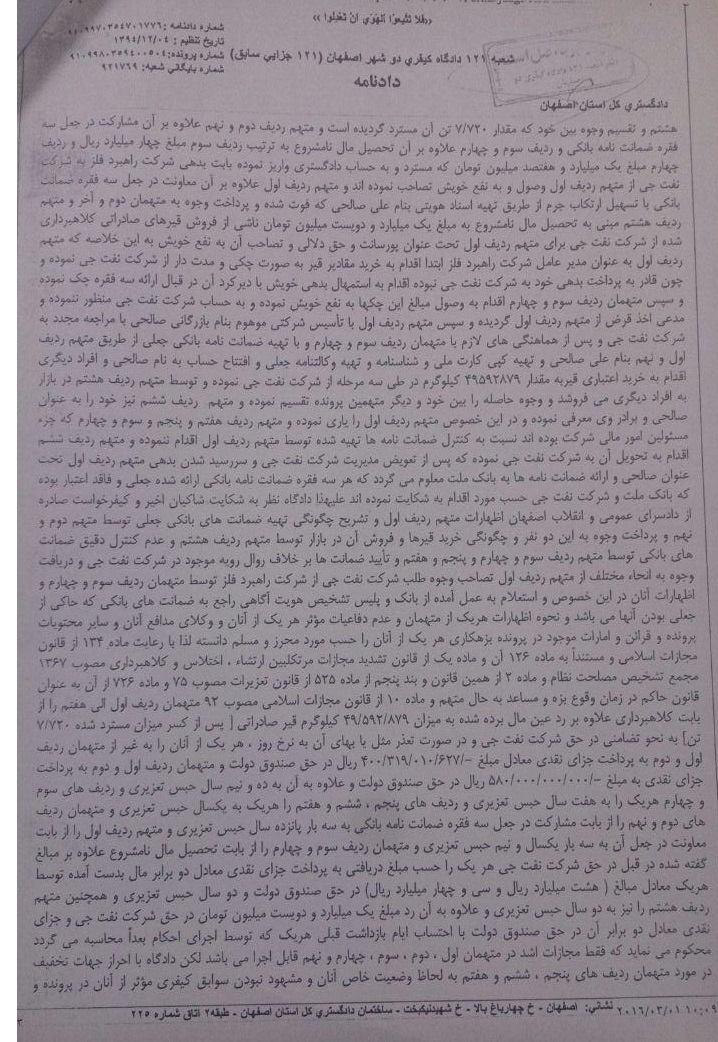 «فلا تتبعوا الهوي ان تعدلوا»
شماره دادنامه :۹۱۰۹۹۷۰۳۵۴۷۰۱۷۷۶
تاریخ تنظیم : ۱۳۹۴/۱۲/۰۴
شماره پرونده:۹۱۰۹۹۸۰۳۵۹۴۰۰۵۰۴
شماره بایگانی شعبه: ۹۲۱۷۶۹
شعبه ۱۲۱ دادگاه کیفری دو شهر اصفهان (۱۲۱ جزایی سابق)
دادنامه
دادگستری کل استان اصفهان
هشتم و تقسیم وجوه بین خود که مقدار ۷/۷۲۰ تن آن مسترد گردیده است و متهم ردیف دوم و نهم علاوه بر آن مشارکت در جعل سه
فقره ضمانت نامه بانکی و ردیف سوم و چهارم علاوه بر آن تحصیل مال نامشروع به ترتیب ردیف سوم مبلغ چهار میلیارد ریال و ردیف
چهارم مبلغ یک میلیارد و هفتصد میلیون تومان که مسترد و به حساب دادگستری واریز نموده بابت بدهی شرکت راهبرد فلز به شرکت
نفت جی از متهم ردیف اول وصول و به نفع خویش تصاحب نموده اند و متهم ردیف اول علاوه بر آن معاونت در جعل سه فقره ضمانت
بانکی با تسهیل ارتکاب جرم از طریق تهیه اسناد هویتی بنام علی صالحی که فوت شده و پرداخت وجوه به متهمان دوم و آخر و متهم
ردیف هشتم مبنی به تحصیل مال نامشروع به مبلغ یک میلیارد و دویست میلیون تومان ناشی از فروش قیرهای صادراتی کلاهبرداری
شده از شرکت نفت جی برای متهم ردیف اول تحت عنوان پورسانت و حق دلالی و تصاحب آن به نفع خویش به این خلاصه که متهم
ردیف اول به عنوان مدیر عامل شرکت راهبرد فلز ابتدا اقدام به خرید مقادیر قیر به صورت چکی و مدت دار از شرکت نفت جی نموده و
چون قادر به پرداخت بدهی خود به شرکت نفت جی نبوده اقدام به استمهال بدهی خویش با دیرکرد آن در قبال ارائه سه فقره چک نموده
و سپس متهمان ردیف سوم و چهارم اقدام به وصول مبالغ این چکها به نفع خویش نموده و به حساب شرکت نفت جی منظور ننموده و
مدعی اخذ قرض از متهم ردیف اول گردیده و سپس متهم ردیف اول با تأسیس شرکتی موهوم بنام بازرگانی صالحی با مراجعه مجدد به
شرکت نفت جی و پس از هماهنگی های لازم با متهمان ردیف سوم و چهارم و با تهیه ضمانت نامه بانکی جعلی از طریق متهم ردیف
اول و نهم بنام علی صالحی و تهیه کپی کارت ملی و شناسنامه و تهیه وکالتنامه جعلی و افتتاح حساب به نام صالحی و افراد دیگری
اقدام به خرید اعتباری قیربه مقدار ۴۹۵۹۲۸۷۹ کیلوگرم در طی سه مرحله از شرکت نفت جی نموده و توسط متهم ردیف هشتم در بازار
به افراد دیگری می فروشد و وجوه حاصله را بین خود و دیگر متهمین پرونده تقسیم نموده و متهم ردیف ششم نیز خود را به عنوان
صالحی و برادر وی معرفی نموده و در این خصوص متهم ردیف اول را یاری نموده و متهم ردیف هفتم و پنجم و سوم و چهارم که جزء
مسئولین امور مالی شرکت بوده اند نسبت به کنترل ضمانت نامه ها تهیه شده توسط متهم ردیف اول اقدام ننموده و متهم ردیف ششم
اقدام به تحویل آن به شرکت نفت جی نموده که پس از تعویض مدیریت شرکت نفت جی و سررسید شدن بدهی متهم ردیف اول تحت
عنوان صالحی و ارائه ضمانت نامه ها به بانک ملت معلوم می گردد که هر سه فقره ضمانت نامه بانکی ارائه شده جعلی و فاقد اعتبار بوده
که بانک ملت و شرکت نفت جی حسب مورد اقدام به شکایت نموده اند علیهذا دادگاه نظر به شکایت شاکیان اخیر و کیفرخواست صادره
از دادسرای عمومی و انقلاب اصفهان اظهارات متهم ردیف اول و تشریح چگونگی تهیه ضمانت های بانکی جعلی توسط متهم دوم و
نهم و پرداخت وجوه به این دو نفر و چگونگی خرید قیرها و فروش آن در بازار توسط متهم ردیف هشتم و عدم کنترل دقیق ضمانت
های بانکی توسط متهم ردیف سوم و چهارم و پنجم و هفتم و تأیید ضمانت ها بر خلاف روال رویه موجود در شرکت نفت جی و دریافت
وجوه به انحاء مختلف از متهم ردیف اول تصاحب وجوه طلب شرکت نفت جی از شرکت راهبرد فلز توسط متهمان ردیف سوم و چهارم و
اظهارات آنان در این خصوص و استعلام به عمل آمده از بانک و پلیس تشخیص هویت آگاهی راجع به ضمانت های بانکی که حاکی از
جعلی بودن آنها می باشد و نحوه اظهارات هریک از متهمان و عدم دفاعیات مؤثر هر یک از آنان و وکلای مدافع آنان و سایر محتویات
پرونده و قرائن و امارات موجود در پرونده بزهکاری هر یک از آنان را حسب مورد محرز و مسلم دانسته لذا با رعایت ماده ۱۳۴ از قانون
مجازات اسلامی و مستنداً به ماده ۱۲۶ آن و ماده یک از قانون تشدید مجازات مرتکبین ارتشاء ، اختلاس و کلاهبرداری مصوب ۱۳۶۷
مجمع تشخیص مصلحت نظام و ماده ۲ از همین قانون و بند پنجم از ماده ۵۲۵ از قانون تعزیرات مصوب ۷۵ و ماده ۷۲۶ از آن به عنوان
قانون حاکم در زمان وقوع بزه و مساعد به حال متهم و ماده ۱۰ از قانون مجازات اسلامی مصوب ۹۲ متهمان ردیف اول الی هفتم را از
بابت کلاهبرداری علاوه بر رد عین مال برده شده به میزان ۴۹/۵۹۲/۸۷۹ کیلوگرم قیر صادراتی [ پس از کسر میزان مسترد شده ۷/۷۲۰
تن] به نحو تضامنی در حق شرکت نفت جی و در صورت تعذر مثل یا بهای آن به نرخ روز ، هر یک از آنان را به غیر از متهمان ردیف
اول و دوم به پرداخت جزای نقدی معادل مبلغ -/۴۰۰/۳۱۹/۰۱۰/۶۲۷ ریال در حق صندوق دولت و متهمان ردیف اول و دوم به پرداخت
جزای نقدی به مبلغ -/۵۸۰/۰۰۰/۰۰۰/۰۰۰ ریال در حق صندوق دولت و علاوه به آن به ده و نیم سال حبس تعزیری و ردیف های سوم
و چهارم هریک را به هفت سال حبس تعزیری و ردیف های پنجم ، ششم و هفتم را هریک به یکسال حبس تعزیری و متهمان ردیف
های دوم و نهم را از بابت مشارکت در جعل سه فقره ضمانت نامه بانکی به سه بار پانزده سال حبس تعزیری و متهم ردیف اول را از بابت
معاونت در جعل آن به سه بار یکسال و نیم حبس تعزیری و متهمان ردیف سوم و چهارم را از بابت تحصیل مال نامشروع علاوه بر مبالغ
گفته شده در قبل در حق شرکت نفت جی هر یک را حسب مبلغ دریافتی به پرداخت جزای نقدی معادل دو برابر مال بدست آمده توسط
هریک معادل مبالغ ( هشت میلیارد ریال و سی و چهار میلیارد ریال) در حق صندوق دولت و دو سال حبس تعزیری و همچنین متهم
ردیف هشتم را نیز به دو سال حبس تعزیری و علاوه به آن رد مبلغ یک میلیارد و دویست میلیون تومان در حق شرکت نفت جی و جزای
نقدی معادل دو برابر آن در حق صندوق دولت با احتساب ایام بازداشت قبلی هریک که توسط اجرای احکام بعداً محاسبه می گردد
محکوم می نماید که فقط مجازات اشد در متهمان اول ، دوم ، سوم ، چهارم و نهم قابل اجرا می باشد لکن دادگاه با احراز جهات تخفیف
در مورد متهمان ردیف های پنجم ، ششم و هفتم به لحاظ وضعیت خاص آنان و مشهود نبودن سوابق کیفری مؤثر از آنان در پرونده و
نشانی: اصفهان - خ چهارباغ بالا - خ شهیدنیکبخت - ساختمان دادگستری کل استان اصفهان - طبقه۲ اتاق شماره ۲۲۵
۲۰۱۶/۰۳/۰۱ ۱۰:۰۹